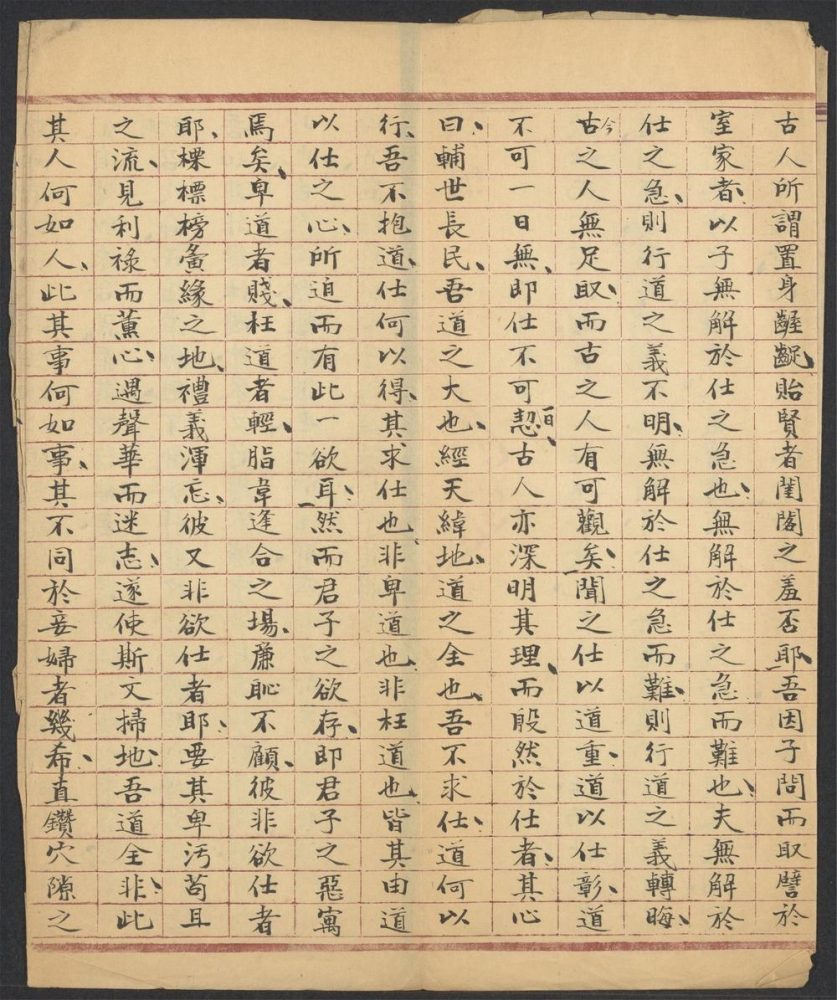 古人所謂置身齷齪、貽賢者閨閣之羞否耶、吾因子問而取譬於
室家者、以子無解於仕之急也、無解於仕之急而難也、夫無解於
仕之急、則行道之義不明、無解於仕之急而難、則行道之義轉晦、
古今之人無足取、而古之人有可觀矣、聞之仕以道重、道以仕彰、道
不可一日無、即仕不可一日恝、古人亦深明其理、而殷然於仕者、其心
曰、輔世長民、吾道之大也、經天緯地、道之全也、吾不求仕、道何以
行、吾不抱道、仕何以得、其求仕也非卑道也非枉道也、皆其由道
以仕之心、所迫而有此一欲耳、然而君子之欲存、即君子之惡寓
焉矣、卑道者賤、枉道者輕、脂韋逢合之場、廉恥不顧、彼非欲仕者
耶、標榜夤緣之地、禮義渾忘、彼又非欲仕者耶、要其卑污苟且
之流、見利祿而薰心、遇聲華而迷志、遂使斯文掃地、吾道全非、此
其人何如人、此其事何如事、其不同於妾婦者幾希、直鑽穴隙之